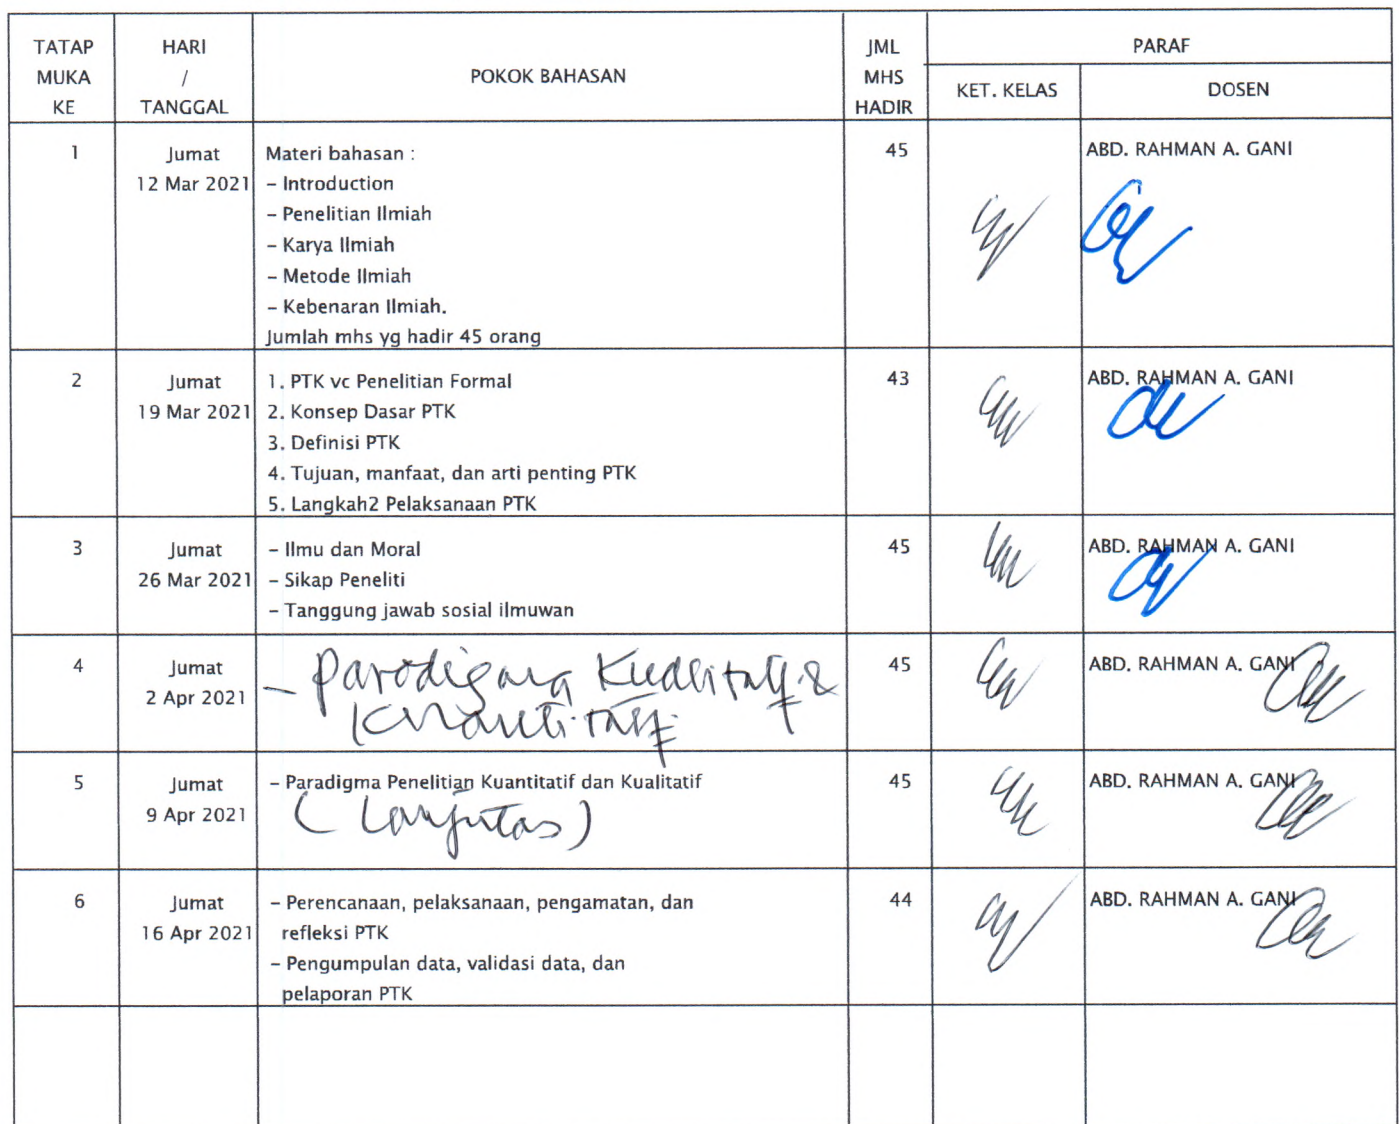 TATAP MUKA KE
HARI / TANGGAL
POKOK BAHASAN
JML MHS HADIR
PARAF
KET. KELAS
DOSEN
1
Jumat
12 Mar 2021
Materi bahasan :
- Introduction
- Penelitian Ilmiah
- Karya Ilmiah
- Metode Ilmiah
- Kebenaran Ilmiah.
Jumlah mhs yg hadir 45 orang
45
ABD. RAHMAN A. GANI
2
Jumat
19 Mar 2021
1. PTK vc Penelitian Formal
2. Konsep Dasar PTK
3. Definisi PTK
4. Tujuan, manfaat, dan arti penting PTK
5. Langkah2 Pelaksanaan PTK
43
ABD. RAHMAN A. GANI
3
Jumat
26 Mar 2021
- Ilmu dan Moral
- Sikap Peneliti
- Tanggung jawab sosial ilmuwan
45
ABD. RAHMAN A. GANI
4
Jumat
2 Apr 2021
- Paradigma Kualitatif &
Kuantitatif.
45
ABD. RAHMAN A. GANI
5
Jumat
9 Apr 2021
- Paradigma Penelitian Kuantitatif dan Kualitatif
(Lanjutan)
45
ABD. RAHMAN A. GANI
6
Jumat
16 Apr 2021
- Perencanaan, pelaksanaan, pengamatan, dan
refleksi PTK
- Pengumpulan data, validasi data, dan
pelaporan PTK
44
ABD. RAHMAN A. GANI